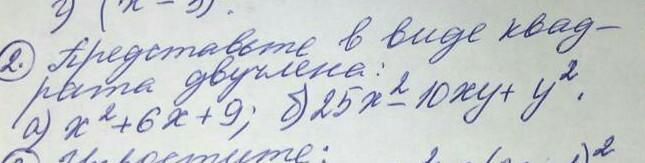 2) (х - 5).
2. Представьте в виде квад-
рата двучлена:
а) x² + 6x + 9; б) 25x² - 10xy + y².
Упростите: